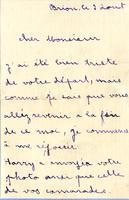 Brion, le 3 Aout
cher Monsieur
j'ai été bien triste
de votre départ, mais
comme je sais que vous
allez revenir à la fin
de ce moi, je commence
à me réjouir.
Harry a envoyé votre
photo ainsi que celle
de vos camarades.